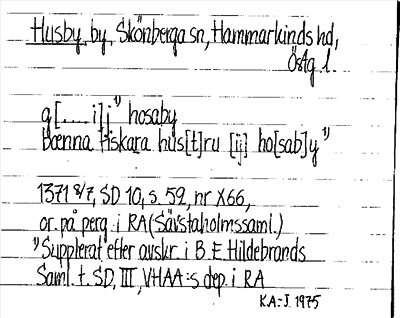 Husby, by, Skönberga sn, Hammarkinds hd,
Östg l.
q[....i]j¹⁾ hosaby
bœnna fiskara hus[t]ru [ij] ho[sab]y¹⁾
1371 8/7, SD 10, s. 52, nr X66,
or. på perg. i RA (Sävstaholmssaml.)
¹⁾Supplerat efter avskr. i B. E. Hildebrands
Saml. t. SD, III, VHAA:s dep. i RA
K.A:-J. 1975